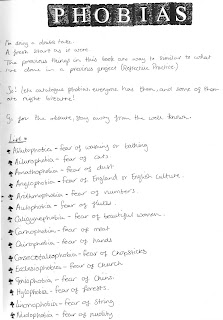 PHOBIAS
I'm doing a double take.
A fresh start as it were
The previous things in this book are way to similar to what
Ive done in a previous project (Reflective Practice)
So: lets catalogue phobias everyone has them, and some of them
are right bizarre!
Go for the obscure, stay away from the well known.
List *
Ablutophobia - fear of washing or bathing
Ailurophobia - fear of cats.
Amathophobia - fear of dust
Anglophobia - fear of England or English culture
Arithmophobia - fear of numbers.
Aulophobia - fear of flutes.
Caligynephobia - fear of beautiful women.
Carnophobia - fear of meat
Chirophobia - fear of hands
Consecotaleophobia - fear of Chopsticks
Ecclesiophobia - fear of Church
Sinophobia - fear of China
Hylophobia - fear of forests.
Linonophobia - fear of String
Nudophobia - fear of nudity